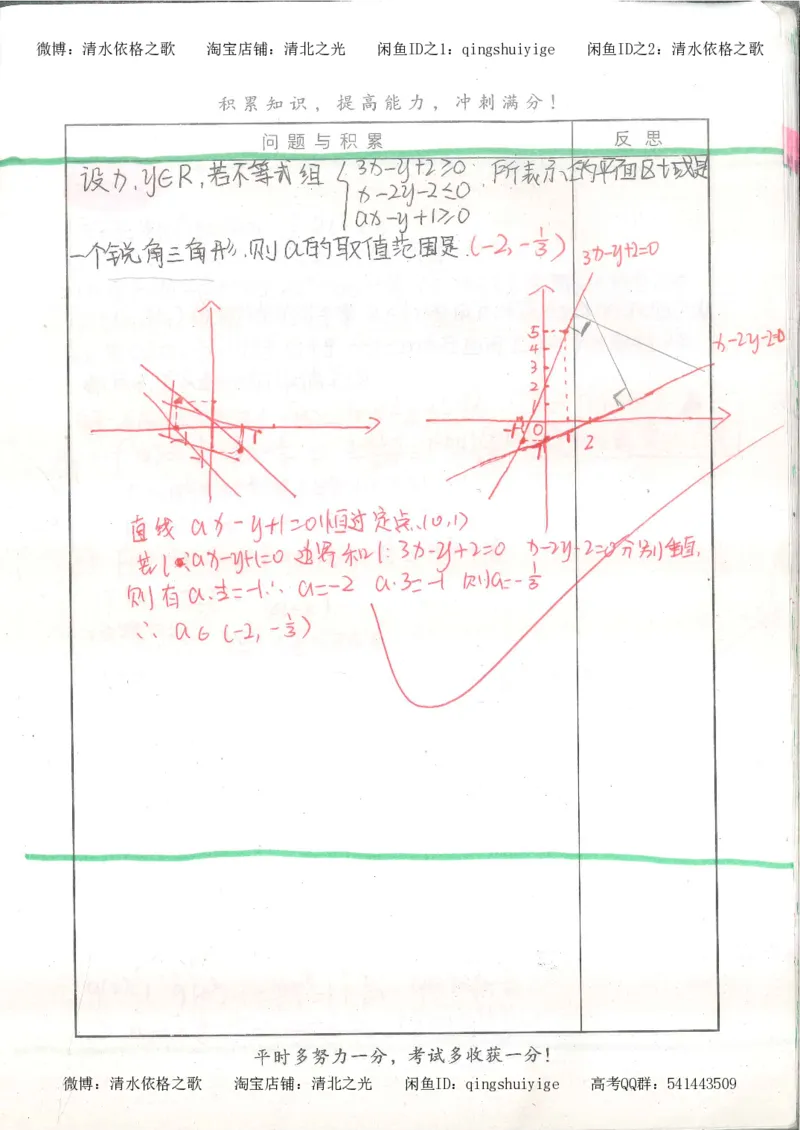 微博：清水依格之歌 淘宝店铺：清北之光 闲鱼ID之1：qingshuiyige 闲鱼ID之2：清水依格之歌
积累知识，提高能力，冲刺满分！
问题与积累 反思
设x,y∈R,若不等式组 { 3x-y+2≥0 所表示的平面区域是
x-2y-2≤0
ax-y+1≥0
一个锐角三角形.则a的取值范围是.(-2,-1/3)
3x-y+2=0
x-2y-2=0
5
4
3
2
1
-1 0 1 2
-1
-1 1
-1
直线 ax-y+1=0恒过定点.(0,1)
若 ax-y+1=0 边界和l: 3x-y+2=0 x-2y-2=0分别垂直,
则有a·1/2=-1∴ a=-2 a·3=-1 则a=-1/3
∴ a∈(-2,-1/3)
平时多努力一分，考试多收获一分！
微博：清水依格之歌 淘宝店铺：清北之光 闲鱼ID：qingshuiyige 高考QQ群：541443509